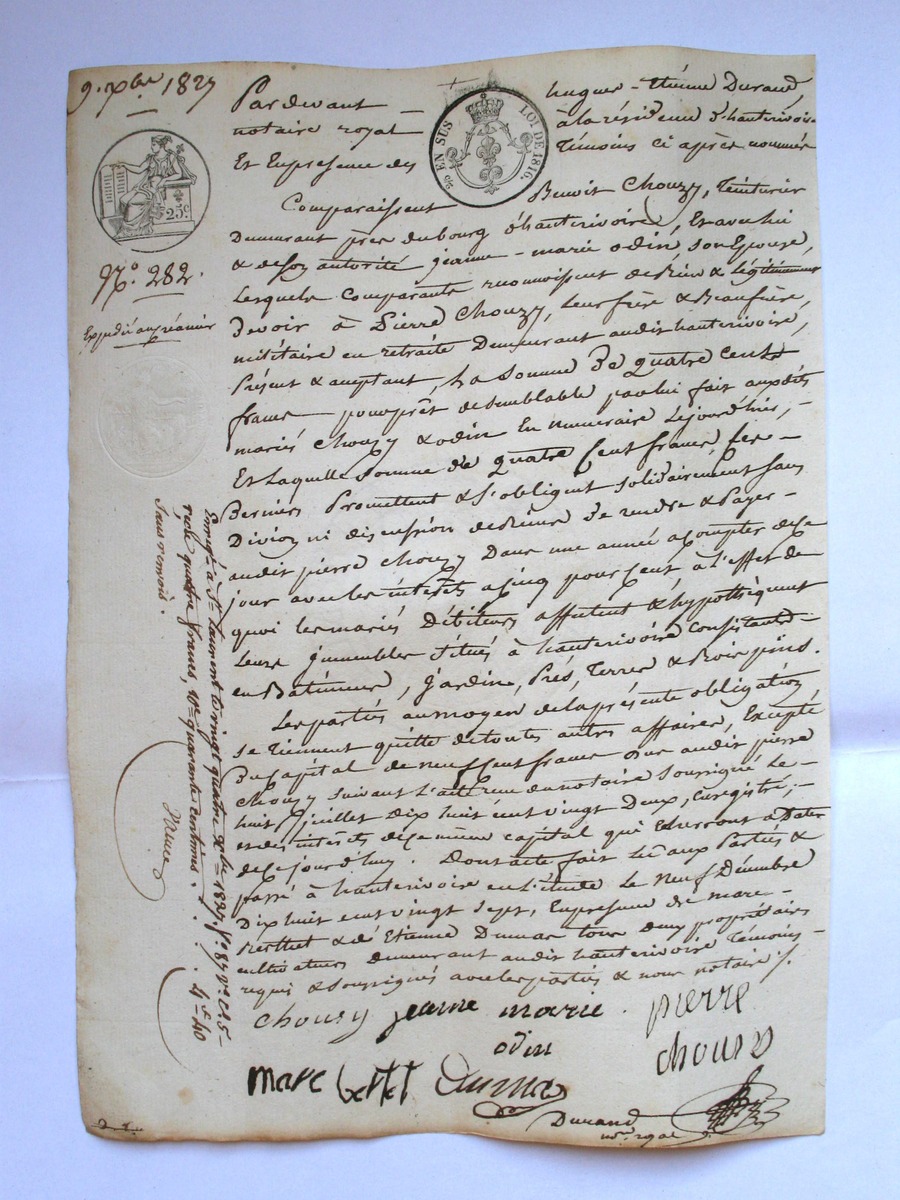 9. xbre 1827
Pardevant hugues-étienne Durand
notaire royal à la résidence d'hauterivoire
Et En presence des témoins ci après nommés
EN SUS
LOI DE 1816.
25c
No. 282.
Expédié au créancier
Comparaissent Benoit Chouzy, Teinturier
Demeurant près du bourg d'hauterivoire, Et avec lui
& de son autorité jeanne-marie odin son Epouse,
Lesquels Comparants reconnoissent devoir & légitimement
Devoir à Pierre Chouzy, Leur frère & Beaufrère,
militaire en retraite Demeurant audit hauterivoire,
Présent & acceptant, La Somme De quatre Cents
francs pour prêt de semblable par lui fait auxdits
mariés Chouzy & odin En numeraire Cejourd'hui,
Et Laquelle Somme De quatre Cent francs, Ces
Derniers Promettent & s'obligent solidairement Sans
Division ni discussion de Biens De rendre & Payer
audit pierre Chouzy Dans une année à Compter de ce
jour avec les intérêts à Cinq pour Cent à L'effet de
quoi les mariés Débiteurs affectent & hypothèquent
Leurs jmmeubles Situés à hauterivoire Consistants
en Bâtiments, jardins, Prés, Terres & Bois pins.
Les parties au moyen de la présente obligation
se Tiennent quitte de toutes autres affaires, Excepté
Du Capital de neuf Cent francs Dus audit pierre
Chouzy suivant L'acte reçu du notaire Soussigné Le
huit juillet Dix huit cent vingt Deux, Enregistré,
et des intérêts de ce même Capital qui Cherront à Dater
de ce jourd'huy. Dont acte fait lu aux Parties &
passé à hauterivoire en L'étude Le Neuf Décembre
Dix huit cent vingt Sept, En presence de marc
Berthet & de Etienne Dumas tous deux propriétaires
cultivateurs demeurant audit hauterivoire Témoins
requis & Soussignés avec les parties & nous notaire ./.
Enregé à St. Laurent le vingt quatre Xbre 1827. fo. 84 vo. C. 5
reçu quatre francs, De quarante centimes.
Sans renvois. 4f-40
chousy jeanne marie pierre
odin chousy
marc bertet Dumas
Durand
nre. royal